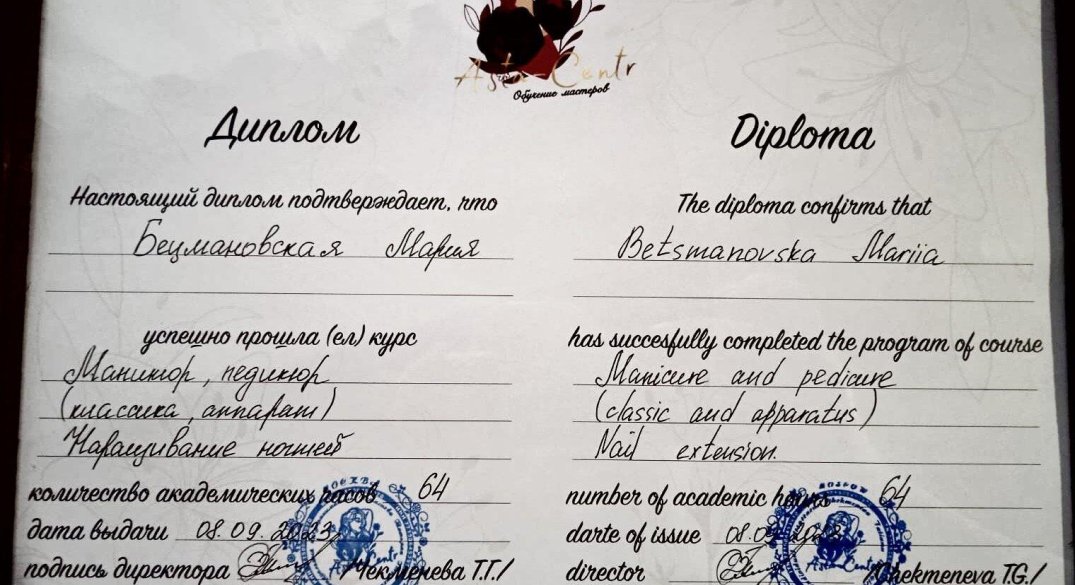 Asta-Centr
Обучение мастеров
Диплом
Настоящий диплом подтверждает, что
Бецмановская Мария
успешно прошла (ел) курс
Маникюр, педикюр
(классика, аппарат)
Наращивание ногтей
количество академических часов 64
дата выдачи 08.09.2023
подпись директора /Чекменева Т.Г./
Diploma
The diploma confirms that
Betsmanovska Mariia
has succesfully completed the program of course
Manicure and pedicure
(classic and apparatus)
Nail extension.
number of academic hours 64
darte of issue 08.09.2023
director /Chekmeneva T.G./